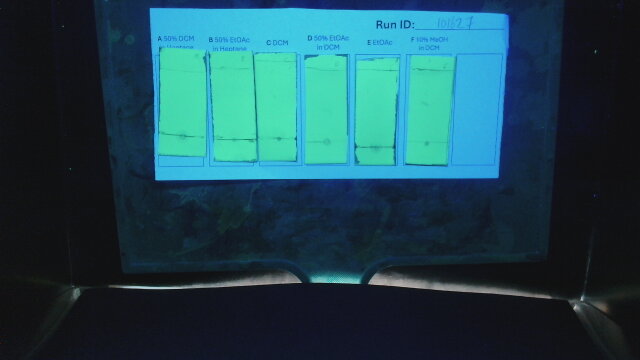 Run ID: 101627
A 50% DCM
in Heptane
B 50% EtOAc
in Heptane
C DCM
D 50% EtOAc
in DCM
E EtOAc
F 10% MeOH
in DCM